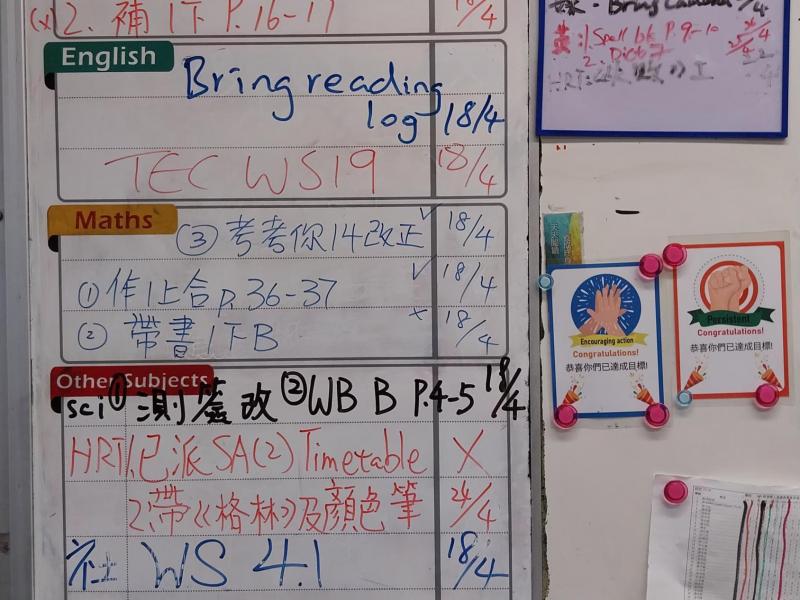 2. 補1下 P.16-17 18/4
English
Bring reading
log 18/4
TEC WS19 18/4
Maths
③ 考考你14改正 ✓ 18/4
①作1上合p.36-37 ✓ 18/4
② 帶書1下B × 18/4
Other Subjects
sci ① 測簽改 ②WB B P.4-5 18/4
HRT 1.已派SA(2) Timetable X
2.帶《格林》及顏色筆 24/4
社 WS 4.1 18/4
Bring
1. Spell bk P.9-10
2. Dict 7
HRT:
Encouraging action
Congratulations!
恭喜你們已達成目標!
Persistent
Congratulations!
恭喜你們已達成目標!